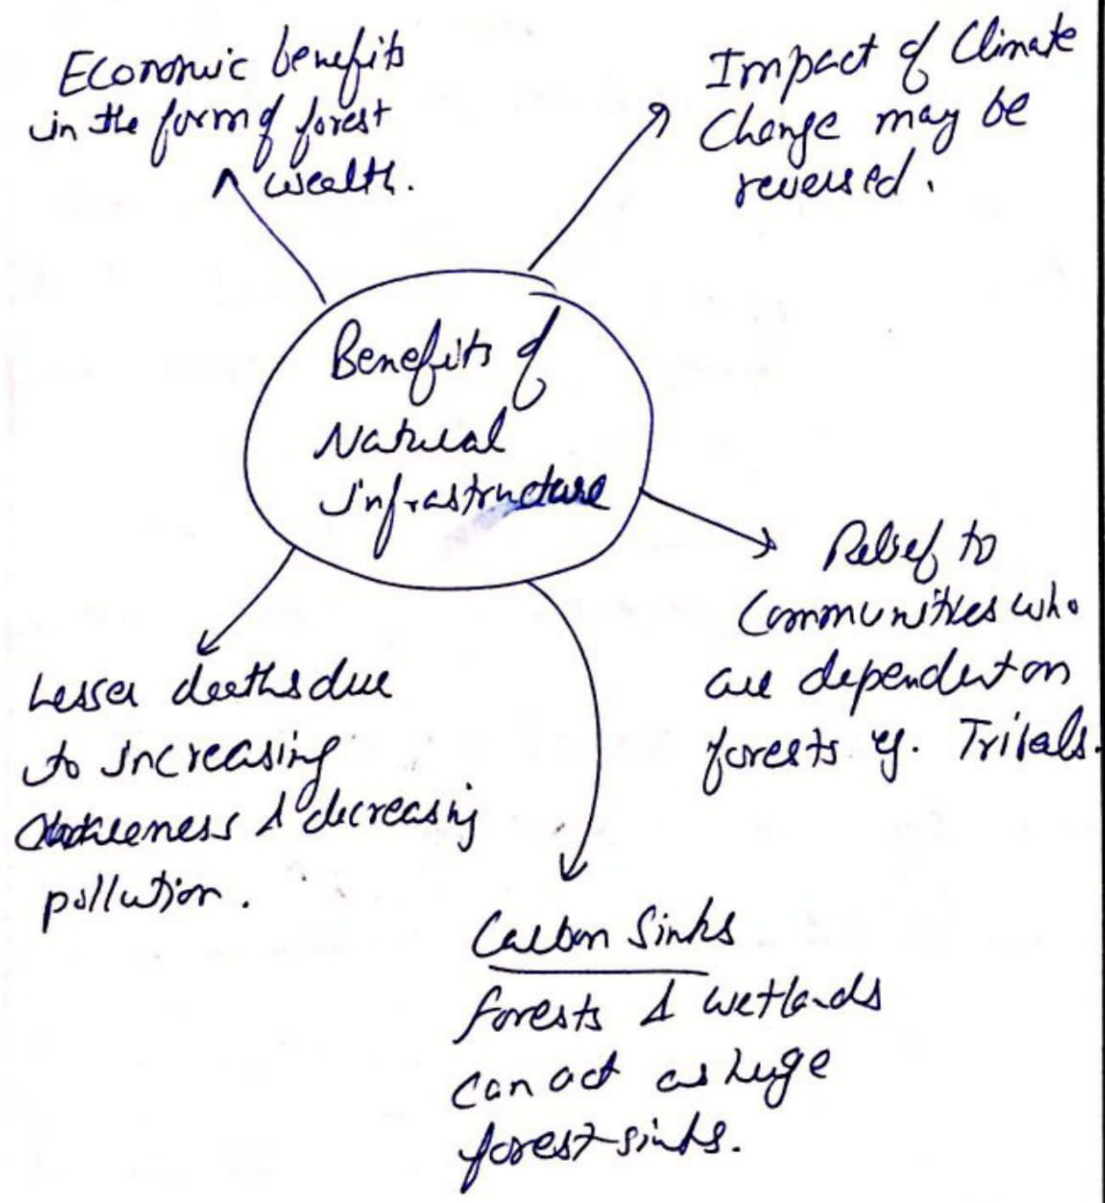 Economic benefits
in the form of forest
wealth.
Impact of Climate
Change may be
reversed.
Benefits of
Natural
infrastructure
Relief to
Communities who
are dependent on
forests eg. Tribals.
Lesser deaths due
to increasing
& decreasing
pollution.
Carbon Sinks
forests & wetlands
can act as huge
forest sinks.